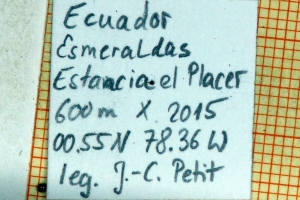 Ecuador
Esmeraldas
Estancia el Placer
600m X. 2015
00.55N 78.36W
leg. J.-C. Petit